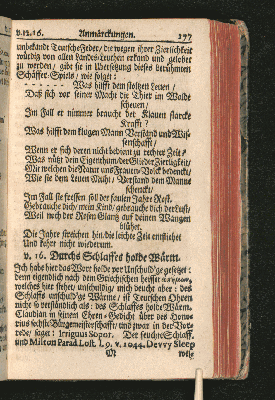 v. 12. 16. Anmärckungen. 177
unbekandt Teutsche Feder, die wegen ihrer Zierlichkeit
würdig von allen Landes-Leuthen erkand und gelobet
zu werden, gibt sie in Ubersetzung dieses berühmten
Schäffer-Spiels, wie folget:
- - - - - - Was hilfft dem stoltzen Leuen,
Daß sich vor seiner Macht die Thier im Walde
scheuen,
Im Fall er nimmer braucht der Klauen starcke
Krafft?
Was hilfft dem klugen Mann Verstand und Wis-
senschafft,
Wenn er sich deren nicht bedient zu rechter Zeit?
Was nützt dein Eigenthum, der Glieder Zierligkeit,
Mit welchen die Natur uns Frauen-Volck bedencke,
Wie sie dem Leuen Muht, Verstand dem Manne
schencke,
Im Fall sie fressen soll der faulen Jahre Rost.
Gebrauche dich, mein Kind, gebrauche dich der Lust,
Weil noch der Rosen Glantz auf deinen Wangen
blühet.
Die Jahre streichen hin, die leichte Zeit entfliehet
Und kehret nicht wiederum.
v. 16. Durchs Schlaffes holde Wärm.
Ich habe hier das Wort holde vor Unschuldge gesetzt:
denn eigendlich nach dem Griechischen
welches hier stehet, unschuldig, mich deucht aber: des
Schlaffs unschuldge Wärme, ist Teutschen Ohren
nicht so verständlich als: des Schlaffes holde Wärm.
Claudian in seinem Ehren-Gedicht über des Hono-
rius sechste Bürgemeisterschafft, und zwar in der Vor-
rede, saget: Irriguus Sopor. Der feuchte Schlaff,
und Milton Parad. Lost. L. 9. v. 1044. Dewy Sleep
M wel-